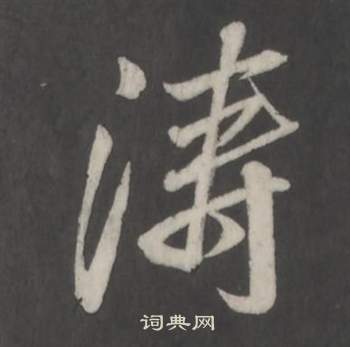 涛
词典网